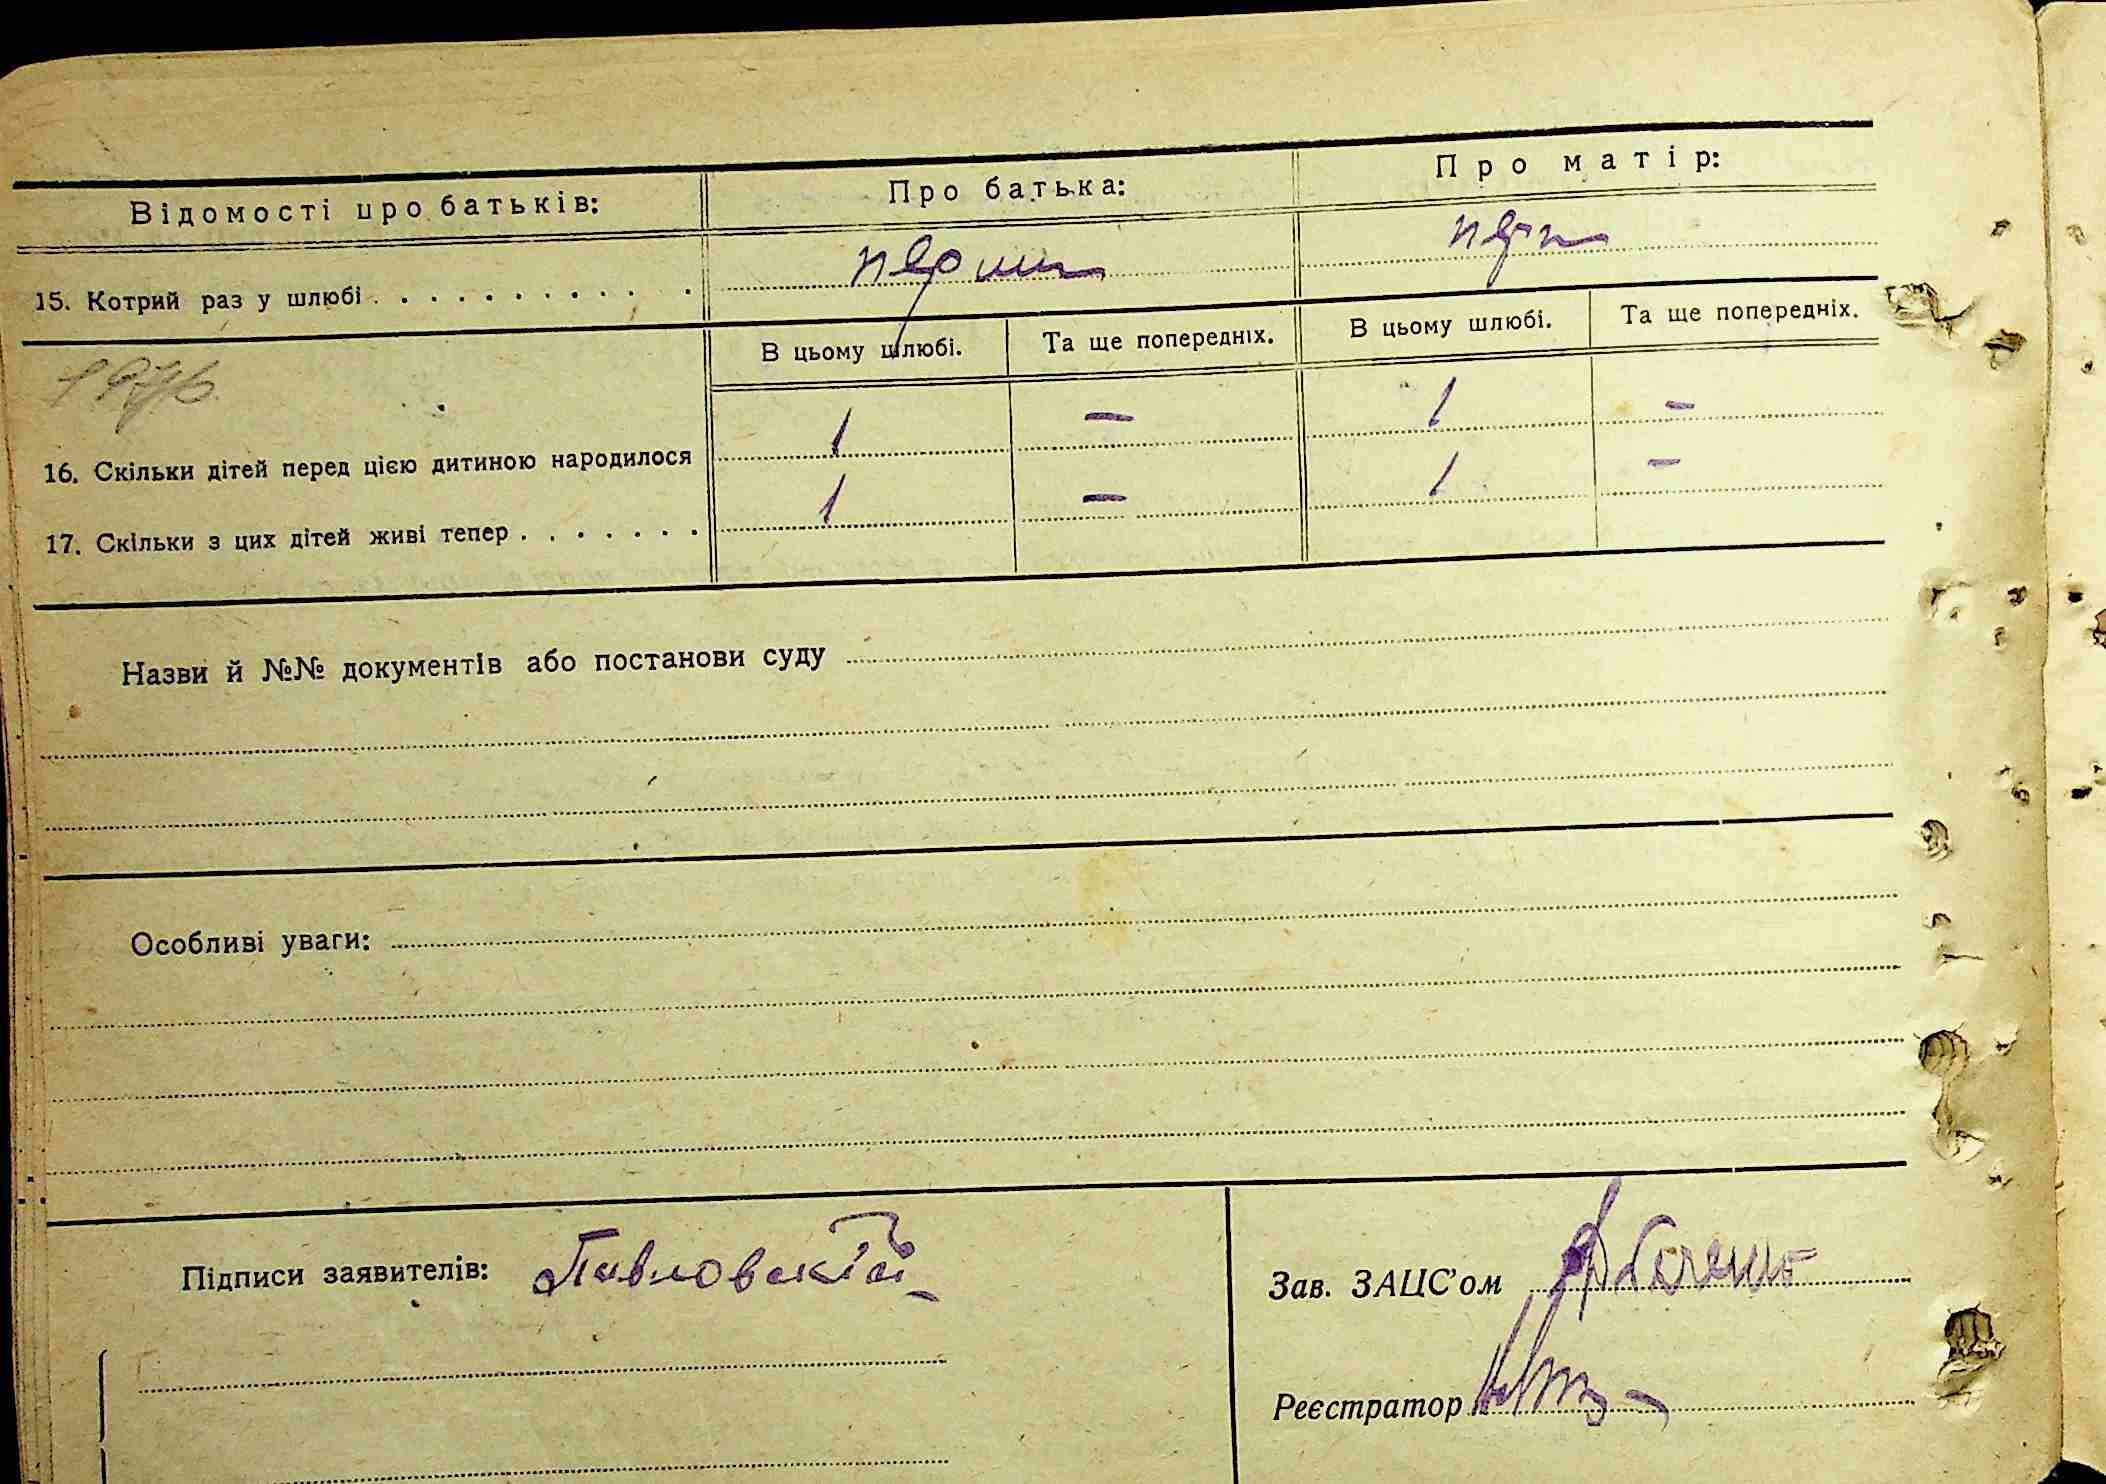 Відомості про батьків: Про батька: Про матір:
15. Котрий раз у шлюбі . . . . . . . . . . . перший перш
В цьому шлюбі. Та ще попередніх. В цьому шлюбі. Та ще попередніх.
16. Скільки дітей перед цією дитиною народилося 1 – 1 –
17. Скільки з цих дітей живі тепер . . . . . . . 1 – 1 –
Назви й №№ документів або постанови суду
Особливі уваги:
Підписи заявителів: Павловский
Зав. ЗАЦС'ом
Реєстратор